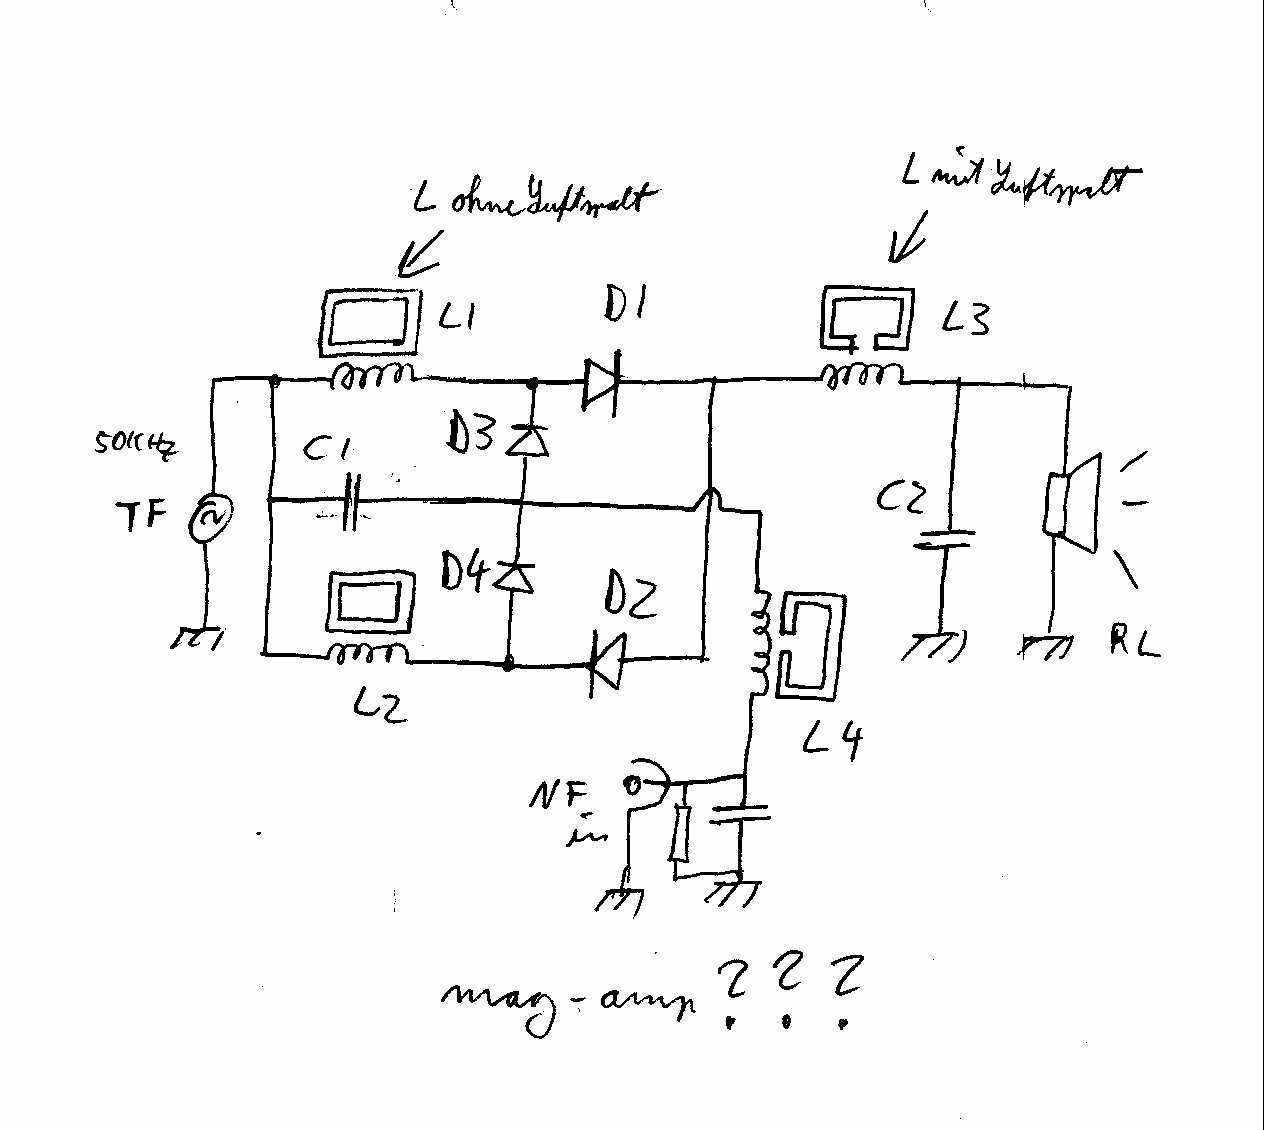 L mit Luftspalt
L ohne Luftspalt
D1
L1
L3
50KHz
D3
C1
TF
C2
D4
D2
RL
L2
L4
NF
in
mag-amp ???